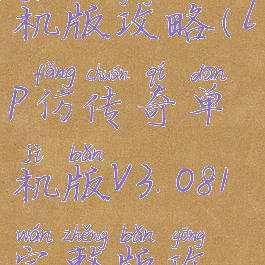 机版攻略(L
fǎng chuán qí dān
P仿传奇单
jī bǎn
机版V3.081
wán zhěng bǎn gōng
完整版攻